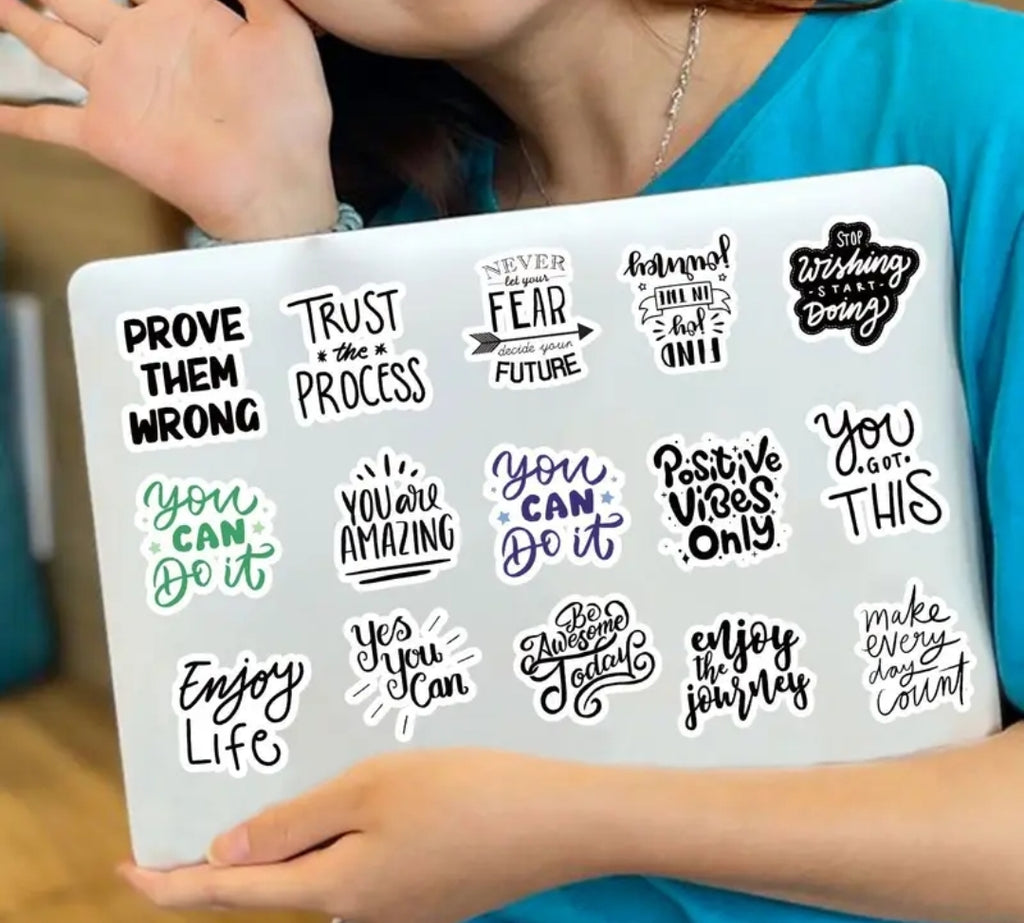 PROVE
THEM
WRONG
TRUST
* the *
PROCESS
NEVER
let your
FEAR
decide your
FUTURE
FIND
joy
IN THE
journey
STOP
Wishing
- START -
Doing
You
CAN
Do it
YOU are
AMAZING
You
CAN
Do it
Positive
ViBes
Only
You
• GOT •
THIS
Enjoy
Life
Yes
You
Can
Be
Awesome
Today
enjoy
the
journey
make
every
day
count